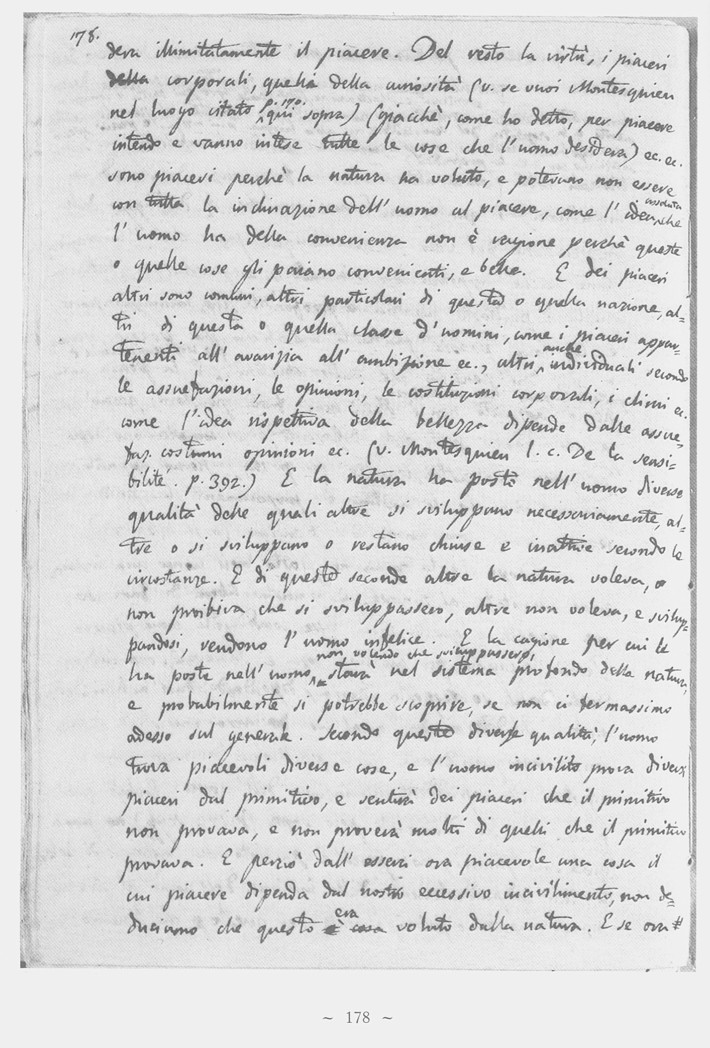 178.
dera illimitatamente il piacere. Del resto la virtù, i piaceri
della corporali, quelli della curiosità (v. se vuoi Montesquieu
nel luogo citato qui sopra) (giacchè, come ho detto, per piacere
p. 170.
intendo e vanno intese tutte le cose che l'uomo desidera) ec. ec.
sono piaceri perchè la natura ha voluto, e potevano non essere
con tutta la inclinazione dell'uomo al piacere, come l'idea che
assoluta
l'uomo ha della convenienza non è ragione perchè queste
o quelle cose gli paiano convenienti, e belle. E dei piaceri
altri sono comuni, altri particolari di questa o quella nazione, al=
tri di questa o quella classe d'uomini, come i piaceri appar=
tenenti all'avarizia all'ambizione ec., altri individuali secondo
anche
le assuefazioni, le opinioni, le costituzioni corporali, i climi ec.
come l'idea rispettiva della bellezza dipende dalle assue=
faz. costumi opinioni ec. (v. Montesquieu l. c. De la sensi=
bilité. p. 392.) E la natura ha posto nell'uomo diverse
qualità delle quali altre si sviluppano necessariamente, al=
tre o si sviluppano o restano chiuse e inattive secondo le
circostanze. E di queste seconde altre la natura voleva, o
non proibiva che si sviluppassero, altre non voleva, e svilup=
pandosi, rendono l'uomo infelice. E la cagione per cui le
ha poste nell'uomo, starà nel sistema profondo della natura,
non volendo che sviluppassero,
e probabilmente si potrebbe scoprire, se non ci fermassimo
adesso sul generale. Secondo queste diverse qualità, l'uomo
trova piacevoli diverse cose, e l'uomo incivilito prova diversi
piaceri dal primitivo, e sentirà dei piaceri che il primitivo
non provava, e non proverà molti di quelli che il primitivo
provava. E perciò dall'esserci ora piacevole una cosa il
cui piacere dipenda dal nostro eccessivo incivilimento, non de=
duciamo che questo è cosa voluto dalla natura. E se ora #
era
~ 178 ~